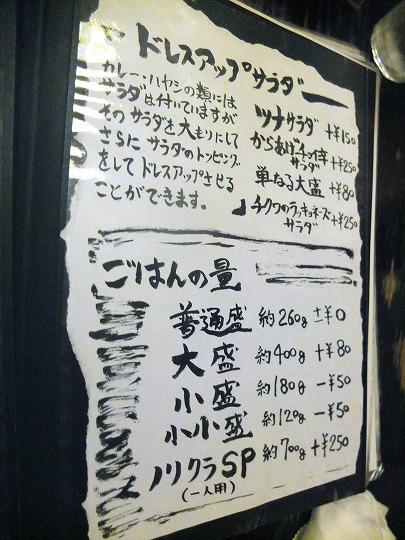 ドレスアップサラダ
カレー・ハヤシの類には
サラダは付いていますが
そのサラダを大もりにして
さらにサラダのトッピング
をしてドレスアップさせる
ことができます。
ツナサラダ +¥150
からあげチョイ辛
サラダ +¥250
単なる大盛 +¥80
チクワのラッキョネーズ
サラダ +¥250
ごはんの量
普通盛 約260g ±¥0
大盛 約400g +¥80
小盛 約180g −¥50
小小盛 約120g −¥50
ノリクラSP 約700g +¥250
(一人用)